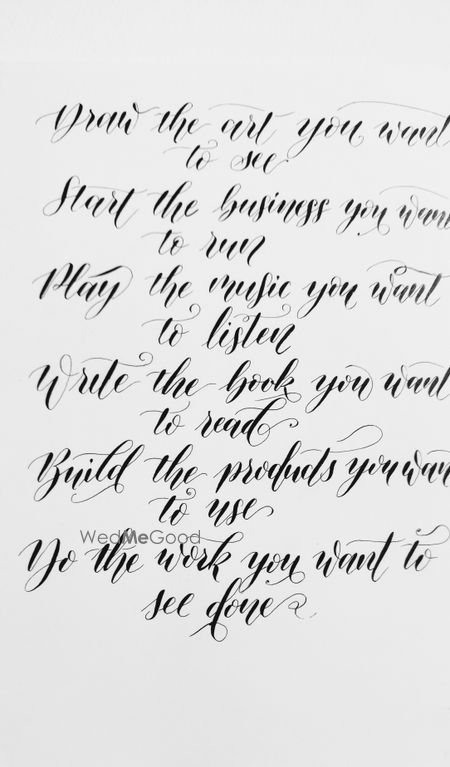 Draw the art you want
to see
Start the business you want
to run
Play the music you want
to listen
Write the book you want
to read
Build the products you want
to use
WedMeGood
Do the work you want to
see done